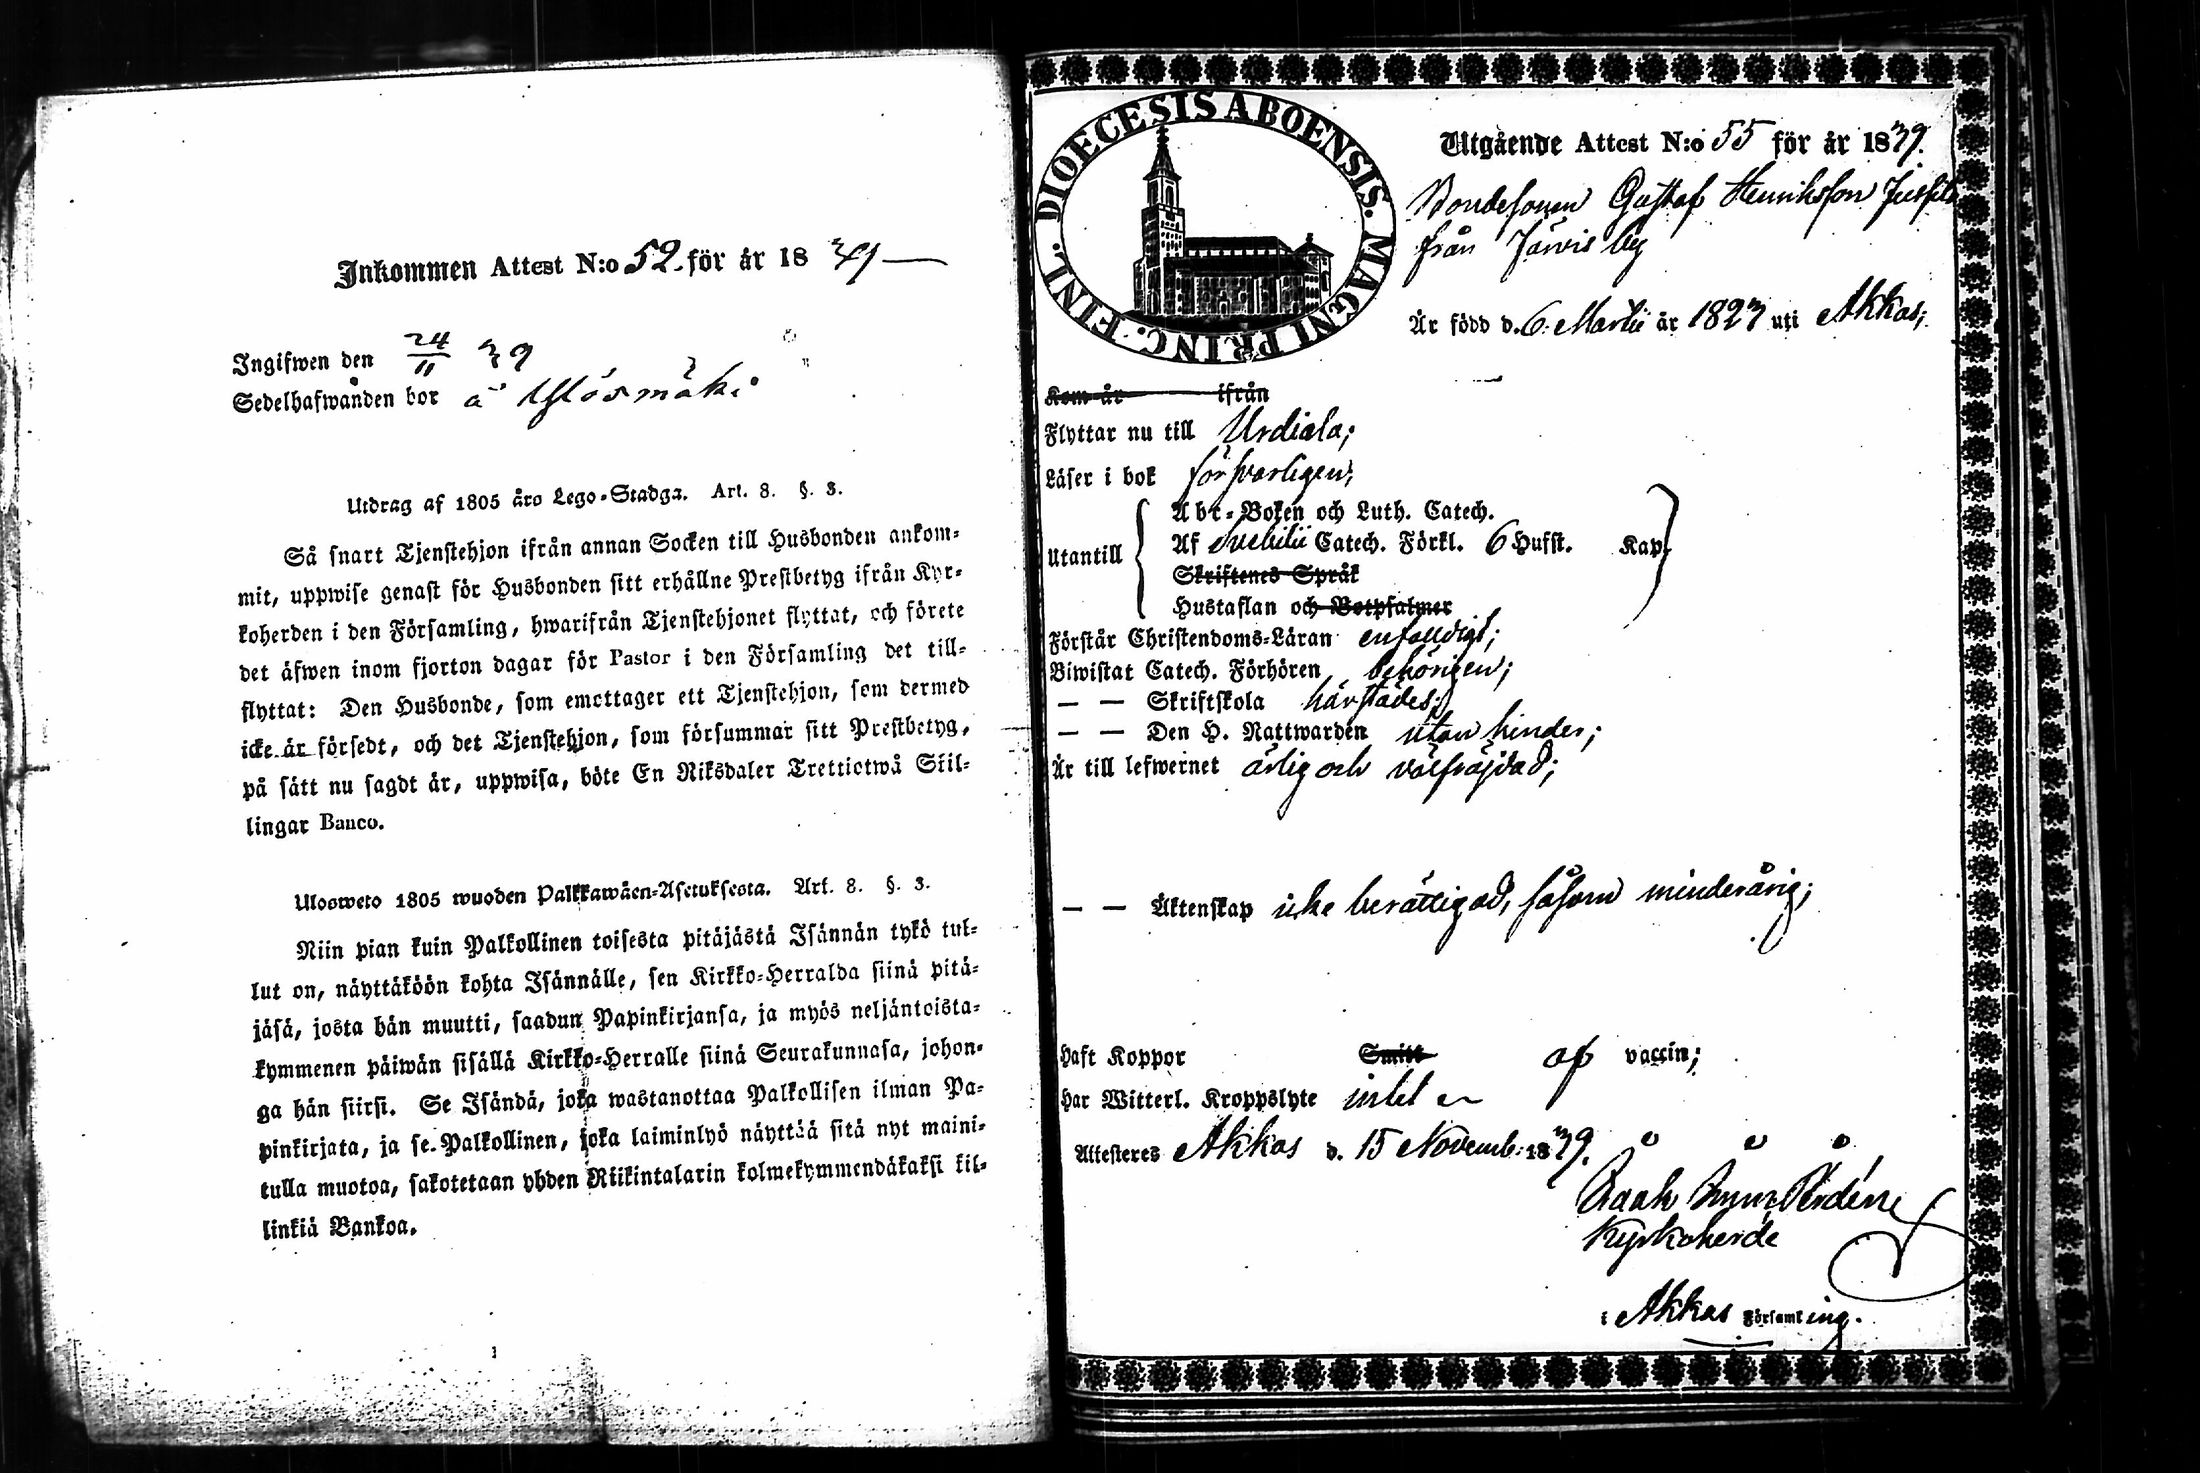 Inkommen Attest N:o 52. för år 18
Ingifwen den 24/11 39
Sedelhafwanden bor å Uhlösmäki
Utdrag af 1805 åro Lego-Stadga. Art. 8. §. 3.
Så snart Tjenstehjon ifrån annan Socken till Husbonden ankom-
mit, uppwise genast för Husbonden sitt erhållne Prestbetyg ifrån Kyr-
koherden i den Församling, hwarifrån Tjenstehjonet flyttat, och förete
det äfwen inom fjorton dagar för Pastor i den Församling det till-
flyttat: Den Husbonde, som emottager ett Tjenstehjon, som dermed
icke är försedt, och det Tjenstehjon, som försummar sitt Prestbetyg,
på sätt nu sagdt är, uppwisa, böte En Riksdaler Trettiotwå Skil-
lingar Banco.
Ulosweto 1805 wuoden Palkkawäen-Asetuksesta. Art. 8. §. 3.
Niin pian kuin Palkollinen toisesta pitäjästä Isännän tykö tul-
lut on, näyttäköön kohta Isännälle, sen Kirkko-Herralda siinä pitä-
jäsä, josta hän muutti, saadun Papinkirjansa, ja myös neljäntoista-
kymmenen päiwän sisällä Kirkko-Herralle siinä Seurakunnasa, johon-
ga hän siirsi. Se Isändä, joka wastanottaa Palkollisen ilman Pa-
pinkirjata, ja se Palkollinen, joka laiminlyö näyttää sitä nyt maini-
tulla muotoa, sakotetaan yhden Riikintalarin kolmekymmendäkaksi kil-
linkiä Bankoa.
DIOECESIS ABOENSIS. MAGNI PRINC. FINL.
Utgående Attest N:o 55 för år 1839.
Bondesonen Gustaf Henriksson
från Järvis by
Är född d. 6. Martii år 1823 uti Akkas;
Kom år ifrån
Flyttar nu till Urdiala;
Läser i bok försvarligen;
Utantill
Abc-Boken och Luth. Catech.
Af Svebilii Catech. Förkl. 6 Hufst. Kap.
Skriftenes Språk
Hustaflan och Botpsalmer
Förstår Christendoms-Läran enfalldigt;
Biwistat Catech. Förhören behörigen;
— — Skriftskola härstädes;
— — Den H. Nattwarden utan hinder;
Är till lefwernet ärlig och välfräjdad;
— — Äktenskap icke berättigad, såsom minderårig;
Haft Koppor Smitt af vaccin;
Har Witterl. Kroppslyte intet
Attesteres Akkas d. 15 Novemb. 1839.
Kyrkoherde
i Akkas Församling.